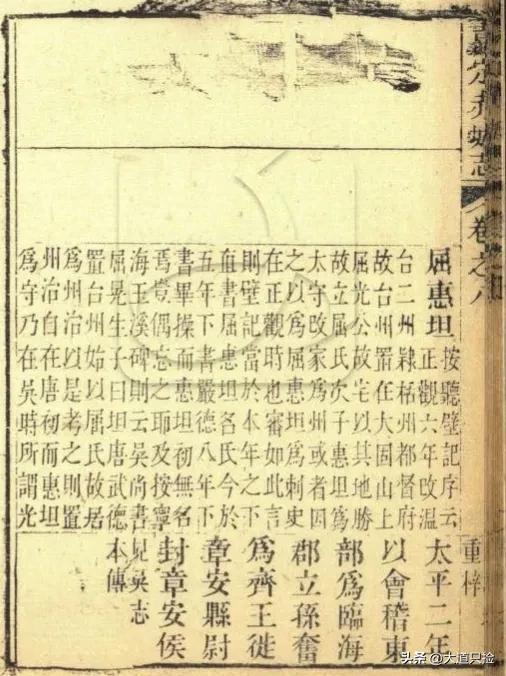 嘉定赤城志 卷之八
屈惠坦
按聽壁記序云
正觀六年改温
台二州隸栝州都督府
故台州置在大固山上
屈光公故宅以其地勝
故立屈氏次子惠坦爲
太守改家爲州或者因
之以爲屈惠坦爲刺史
在正觀時也審如此言
則壁記當於本年之下
直書屈惠坦名氏今於
五年下書嚴德八年下
書畢操而惠坦初無名
焉豈偶忘之耶及按寧
海玉溪碑則云吳尚書
屈晃生子曰坦唐武德
置台州始以屈氏故居
爲州治以是考之則置
州治自在唐初而惠坦
爲守乃在吳時所謂光
重梓
太平二年
以會稽東
部爲臨海
郡立孫奮
爲齊王徙
章安縣尉
封章安侯
見吳志
本傳
头条 @大道只淦